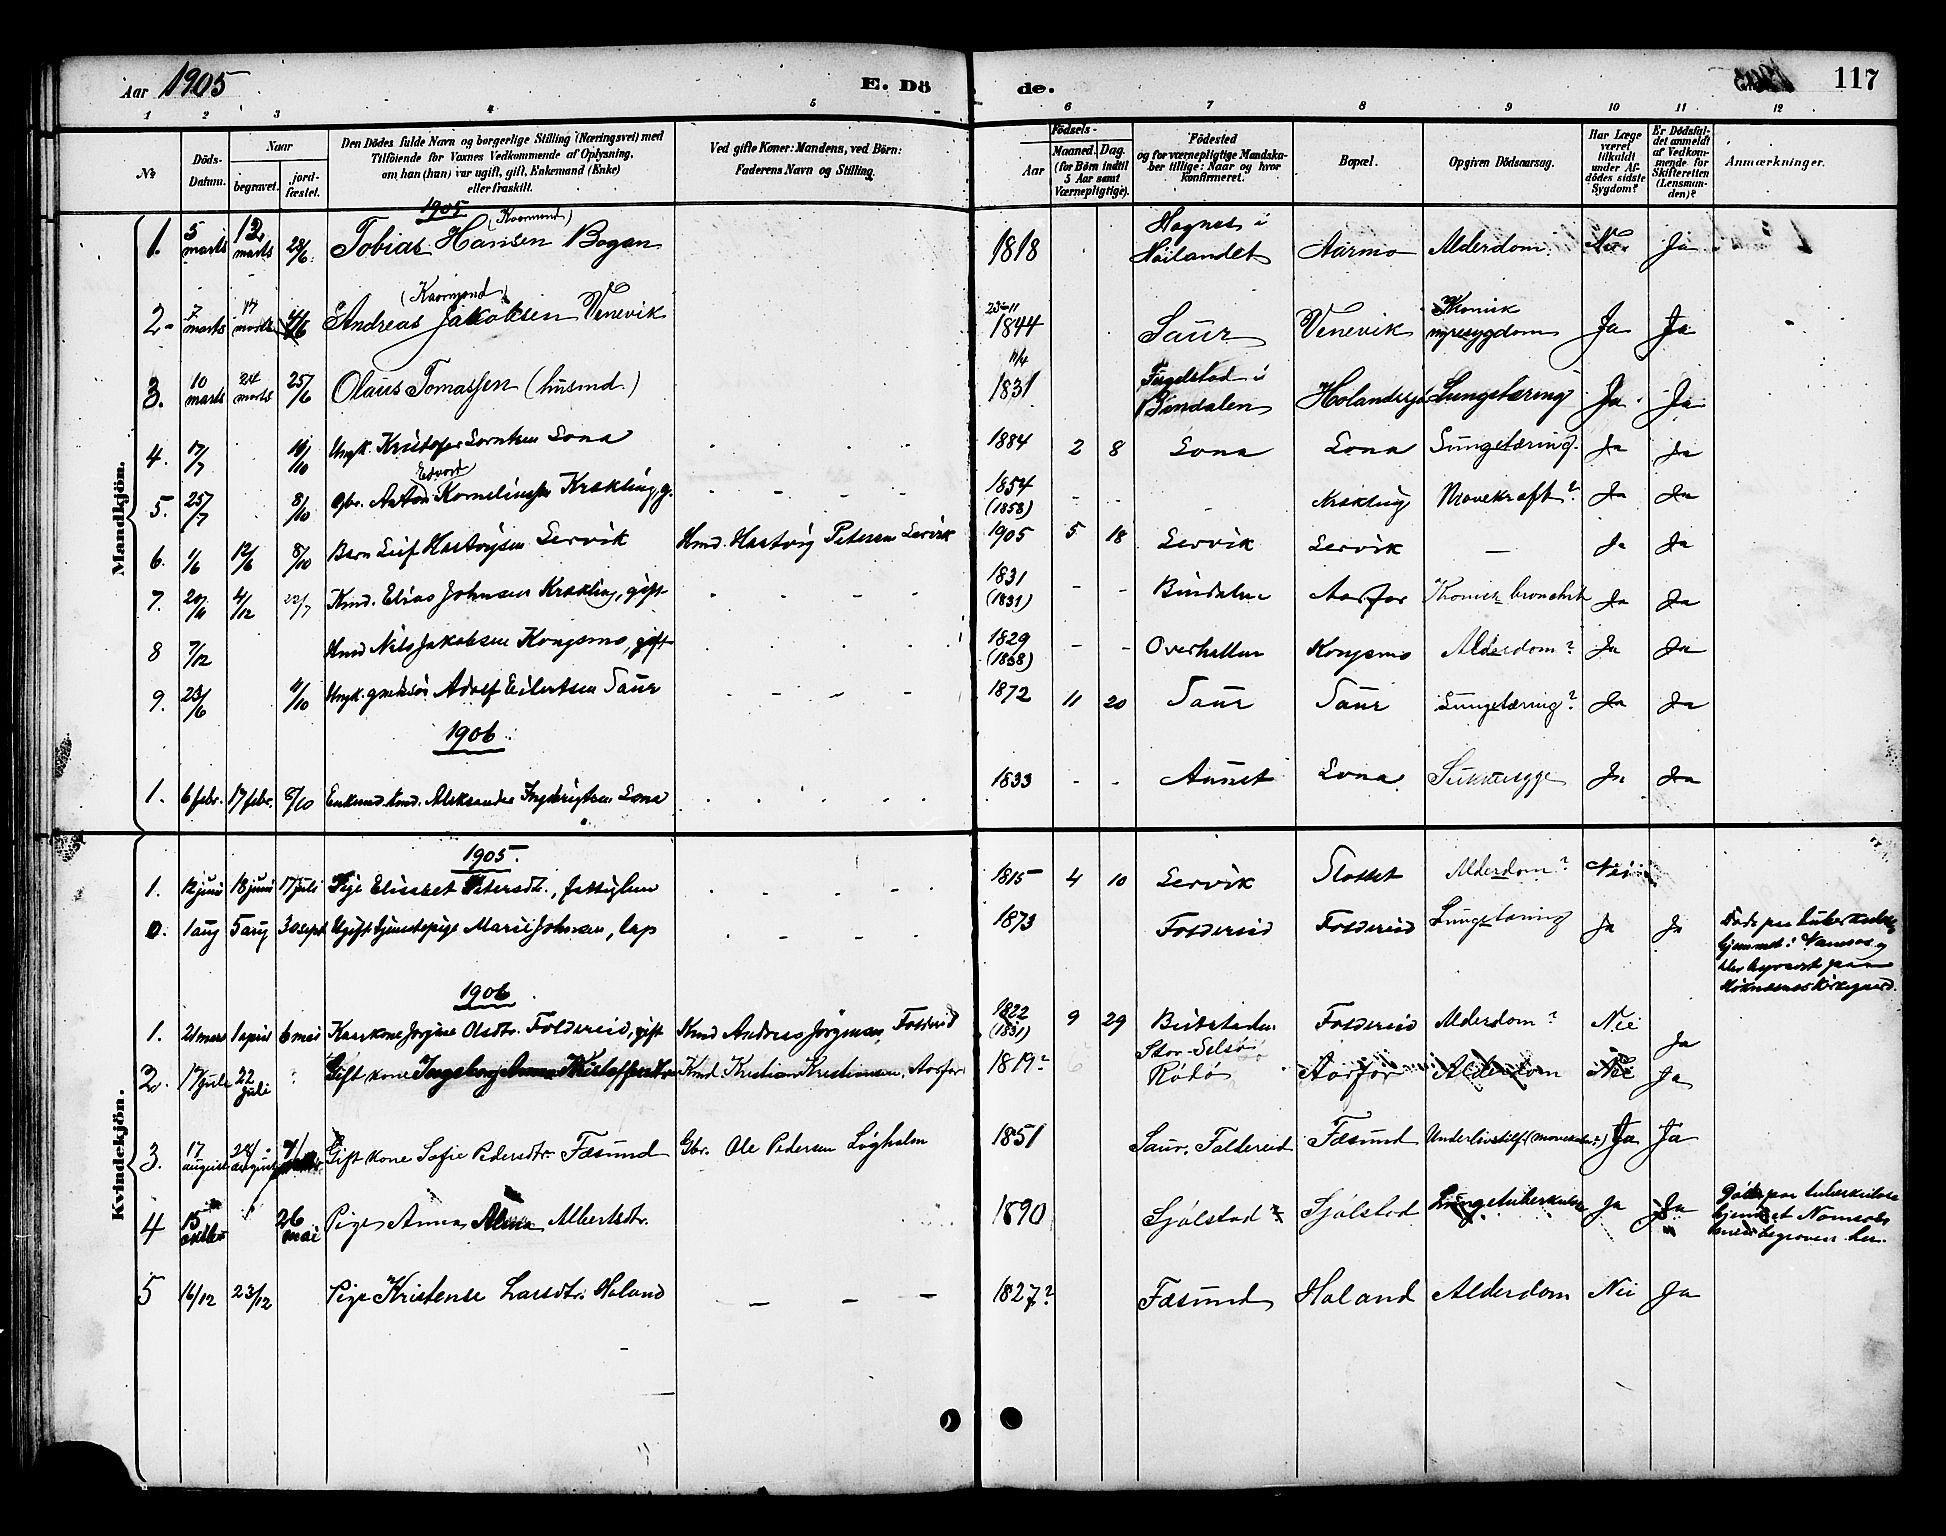 Aar 1905 E. Dö de. 117
1 2 3 4 5 6 7 8 9 10 11 12
No
Döds-Datum.
Naar
begravet.
jord-fæstet.
Den Dödes fulde Navn og borgerlige Stilling (Næringsvei) med
Tilföiende for Voxnes Vedkommende af Oplysning,
om han (hun) var ugift, gift, Enkemand (Enke)
eller fraskilt.
Ved gifte Koner: Mandens, ved Börn:
Faderens Navn og Stilling.
Födsels-
Aar
Maaned. Dag.
(for Børn indtil
5 Aar samt
Værnepligtige).
Födested
og for værnepligtige Mandska-
ber tillige: Naar og hvor
konfirmeret.
Bopæl.
Opgiven Dödsaarsag.
Har Læge
været
tilkaldt
under Af-
dödes sidste
Sygdom?
Er Dödsfal-
det anmeldt
af Vedkom-
mende for
Skifteretten
(Lensman-
den)?
Anmærkninger.
Mandkjön.
1905
1. 5 marts 12 marts 28/6. Tobias Hansen (Kaarmand) Bogen 1818 Hagnes i Höilandet Aarmo Alderdom. Nei Ja
2. 7 marts 17 marts 4/6 Andreas Jakobsen (Kaarmand) Venevik 23-11 1844 Saur Venevik Kronisk nyresygdom Ja Ja
3. 10 marts 24 marts 25/6 Olaus Tomassen (husmd.) 11/4 1831 i Bindalen Lungetæring Ja Ja
4. 17/7 10/10 Ungk. Kristofer Lorntsen Lona 1884 2 8 Lona Lona Lungetæring. Ja Ja
5. 25/7 8/10 Gbr. Anton Edvard Korneliussen Krækling, g. 1854 (1858) Krækling Mavekræft? Ja Ja
6. 1/6 12/6 8/10 Barn Leif Hartvigsen Lervik Hmd. Hartvig Petersen Lervik 1905 5 18 Lervik Lervik — Ja Ja
7. 20/11 4/12 22/7 Kmd. Elias Johnsen Krækling, gift 1831 (1831) Bindalen Aarfor Kronisk bronchit Ja Ja
8 7/12 Hmd Nils Jakobsen Kongsmo, gift 1829 (1858) Overhallen Kongsmo Alderdom? Ja Ja
9. 23/6 4/10 Ungk. Adolf Eilertsen Saur 1872 11 20 Saur Saur Lungetæring? Ja Ja
1906
1. 6 febr. 17 febr. 8/10 Enkemd. Kmd. Aleksander Ingebrigtsen Lona 1833 Aunet Lona Ja Ja
Kvindekjön.
1905.
1. 12 juni 18 juni 17 juli Pige Elisabet Petersdtr., fattiglem 1815 4 10 Lervik Slottet Alderdom? Nei
1 aug 5 aug 30 sept Ugift tjenestepige Marie Johnsen, lap 1873 Foldereid Foldereid Lungetæring Ja Ja Døde paa tuberkulose hjemmet i Namsos og blev begravet paa kirkegaard.
1906
1. 1 april 6 mai Kaarkone Jørgine Olsdtr. Foldereid, gift Kmd Andreas Jørgensen, Foldereid 1822 (1831) 9 29 Beitstaden Foldereid Alderdom? Nei Ja
2. 17 juli 22 juli Gift kone Ingeborg Anna Kristoffersdtr Kmd Kristian Kristiansen, Aarfor 1819? Rødø Aarfor Alderdom Nei Ja
3. 17 august 24/ august Gift kone Sofie Pedersdtr. Fæsund Gbr. Ole Pedersen Lögholm 1851 Saur, Foldereid Fæsund Ja Ja
4 15 oktbr 26 mai Pige Anna Alma Albertsdtr. 1890 Sjölstad Sjölstad Lungetuberkulose Ja Ja Døde paa tuberkulose hjemmet Namsos men begraven her.
5 16/12 23/12 Pige Kristense Larsdtr. Holand — — — 1827? Fæsund Holand Alderdom Nei Ja